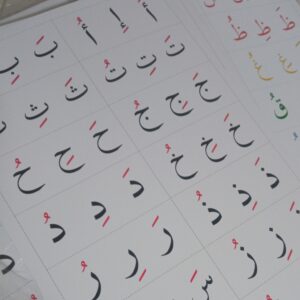 أَ إِ أُ بَ بِ
تَ تِ تُ ثَ ثِ
جَ جِ جُ حَ حِ حُ
خَ خِ خُ دَ دِ دُ
ذَ ذِ ذُ رَ رِ رُ
زِ زُ سَ
ظَ ظِ ظُ
قُ